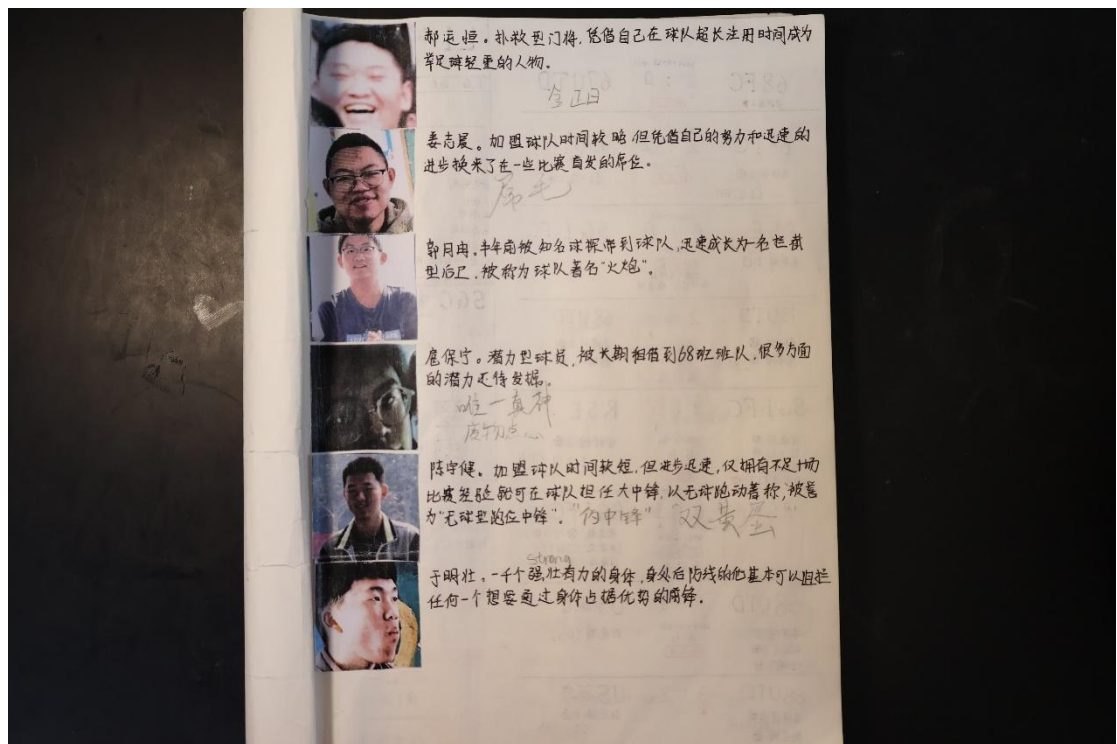 郝运恒。扑救型门将,凭借自己在球队超长注册时间成为
举足轻重的人物。
金正日
姜志晨。加盟球队时间较晚,但凭借自己的努力和迅速的
进步换来了在一些比赛首发的席位。
屌毛
郭月冉,半年前被知名球探带到球队,迅速成长为一名拦截
型后卫,被称为球队著名“火炮”。
扈保宁。潜力型球员,被长期租借到68班班队,很多方面
的潜力还待发掘。
唯一真神
废物点心
陈守健。加盟球队时间较短,但进步迅速,仅拥有不足十场
比赛经验就可在球队担任大中锋,以无球跑动著称,被誉
为“无球型跑位中锋”。“伪中锋”“双黄蛋”
strong
于明壮。一个强壮有力的身体,身处后防线的他基本可以阻拦
任何一个想要通过身体占据优势的前锋。